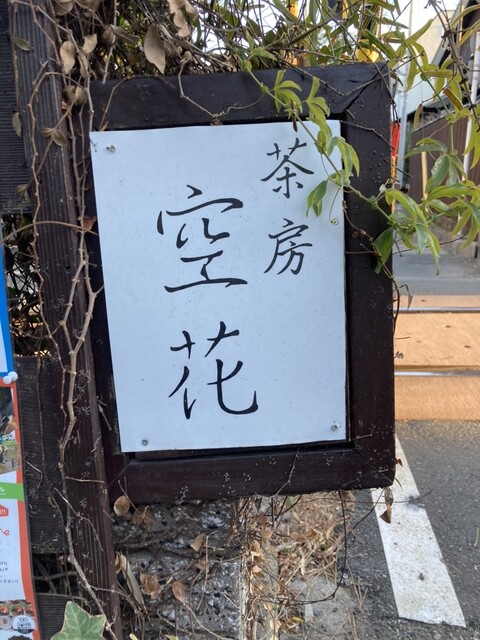 茶房
空花